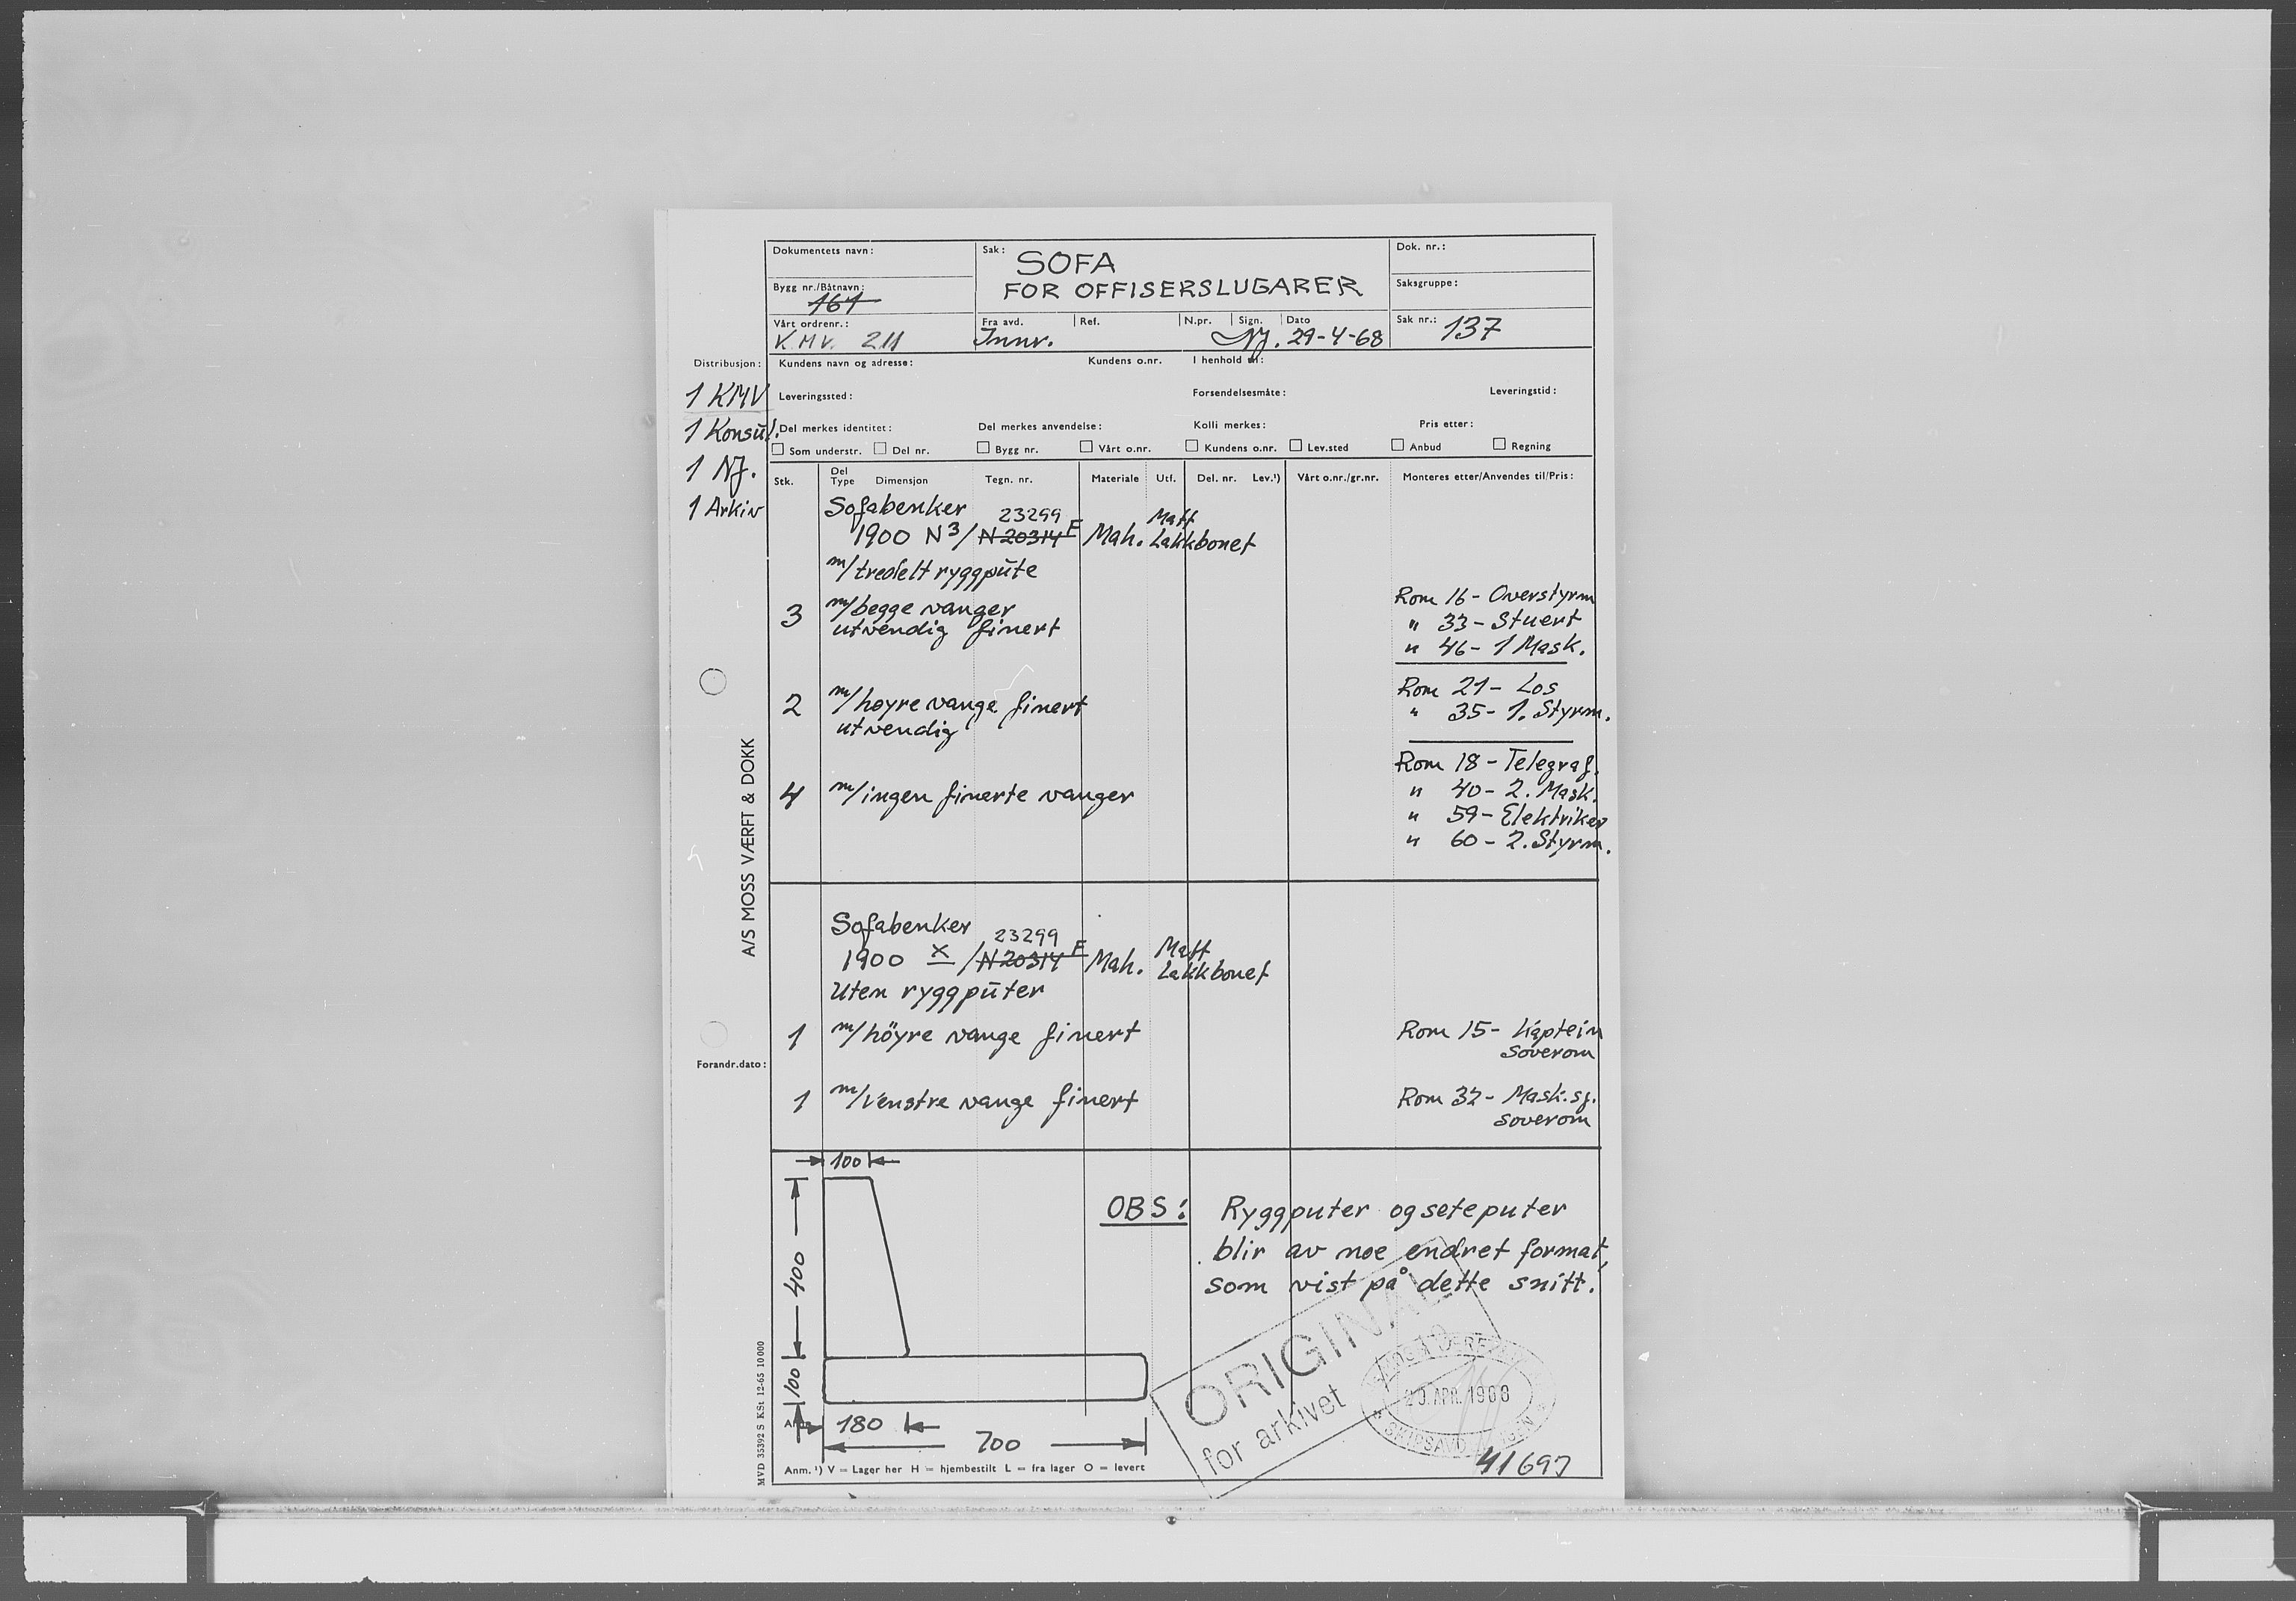 Dokumentets navn:
Sak: SOFA
FOR OFFISERSLUGARER
Dok. nr.:
Bygg nr./Båtnavn:
161
Saksgruppe:
Vårt ordrenr.:
K.M.V. 211
Fra avd. Ref. N.pr. Sign. Dato
Innr. NJ. 29-4-68
Sak nr.: 137
Distribusjon:
1 KMV
1 Konsul.
1 NJ.
1 Arkiv
Kundens navn og adresse: Kundens o.nr. I henhold til:
Leveringssted: Forsendelsesmåte: Leveringstid:
Del merkes identitet: Del merkes anvendelse: Kolli merkes: Pris etter:
Som understr. Del nr. Bygg nr. Vårt o.nr. Kundens o.nr. Lev.sted Anbud Regning
Stk. Del Type Dimensjon Tegn. nr. Materiale Utf. Del. nr. Lev.¹) Vårt o.nr./gr.nr. Monteres etter/Anvendes til/Pris:
Sofabenker 23299 Matt
1900 N3/N 20314 E Mah. Lakkbonet
m/tredelt ryggpute
3 m/begge vanger
utvendig finert
Rom 16 - Overstyrm
" 33 - Stuert
" 46 - 1 Mask.
2 m/høyre vange finert
utvendig
Rom 21 - Los
" 35 - 1. Styrm.
4 m/ingen finerte vanger
Rom 18 - Telegraf.
" 40 - 2. Mask.
" 59 - Elektriker
" 60 - 2. Styrm.
A/S MOSS VÆRFT & DOKK
Sofabenker 23299 Matt
1900 X /N 20314 E Mah. Lakkbonet
Uten ryggputer
1 m/höyre vange finert
Rom 15 - Kaptein
soverom
Forandr.dato:
1 m/venstre vange finert
Rom 32 - Mask.sj.
soverom
100
400
100
180
700
OBS! Ryggputer og seteputer
blir av noe endret format,
som vist på dette snitt!
ORIGINAL
for arkivet
29. APR. 1968
41697
Anm. ¹) V = Lager her H = hjembestilt L = fra lager O = levert
MVD 35392 S KSt 12-65 10000